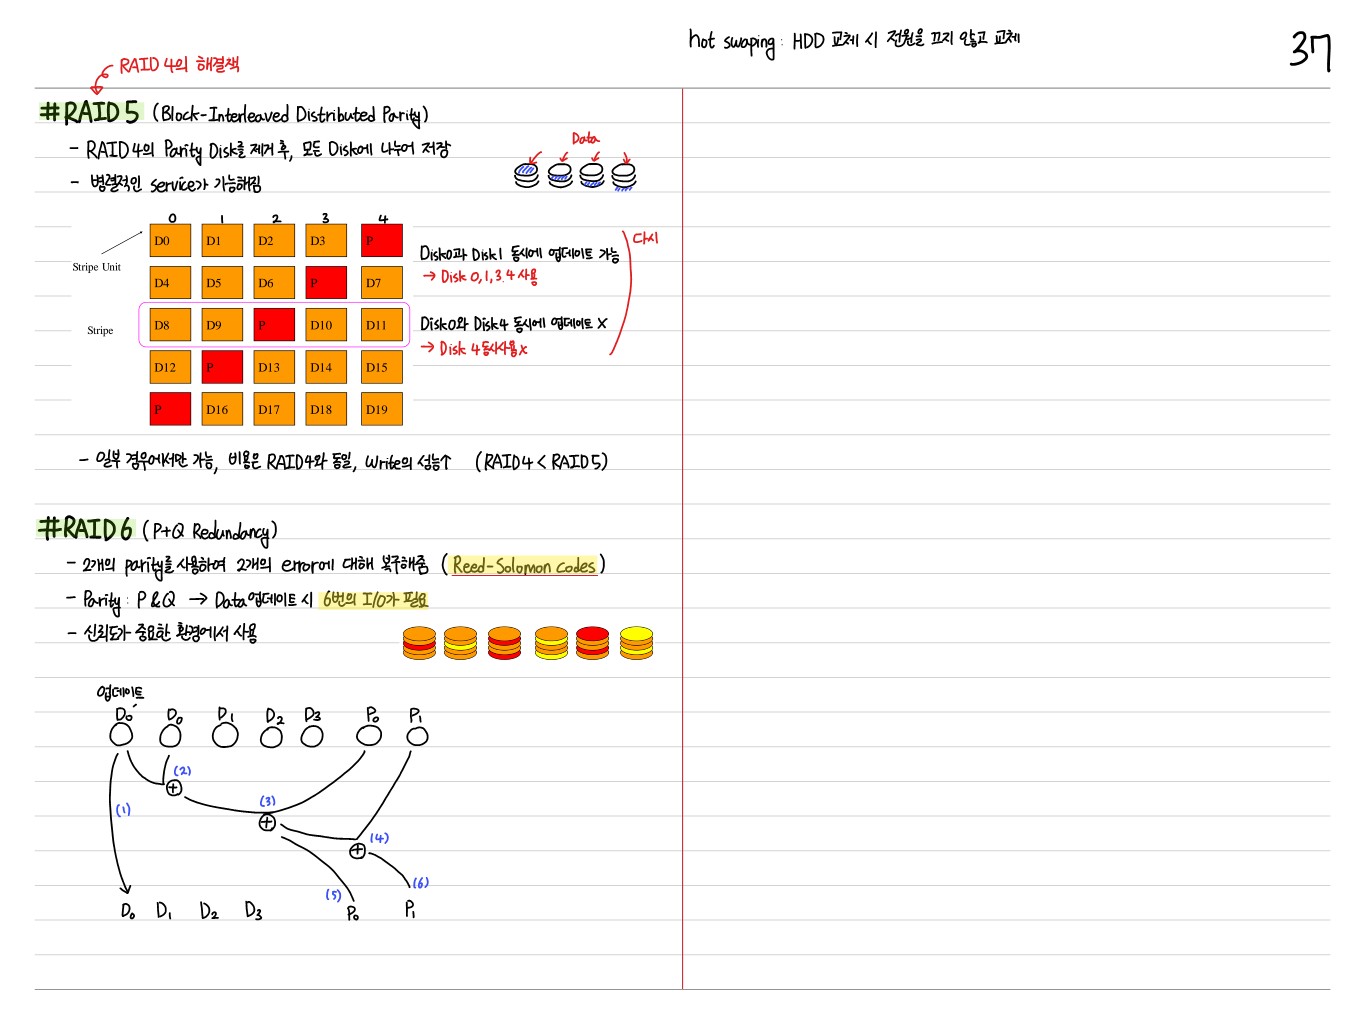 hot swaping : HDD 교체 시 전원을 끄지 않고 교체
37
RAID 4의 해결책
#RAID 5 (Block-Interleaved Distributed Parity)
- RAID 4의 Parity Disk를 제거 후, 모든 Disk에 나누어 저장
- 병렬적인 service가 가능해짐
Data
0 1 2 3 4
D0 D1 D2 D3 P
Stripe Unit
D4 D5 D6 P D7
Stripe
D8 D9 P D10 D11
D12 P D13 D14 D15
P D16 D17 D18 D19
Disk0과 Disk1 동시에 업데이트 가능
→ Disk 0, 1, 3. 4 사용
Disk0와 Disk4 동시에 업데이트 X
→ Disk 4 동시사용 x
다시
- 일부 경우에서만 가능, 비용은 RAID4와 동일, Write의 성능↑ (RAID 4 < RAID 5)
#RAID 6 (P+Q Redundancy)
- 2개의 parity를 사용하여 2개의 error에 대해 복구해줌 (Reed-Solomon codes)
- Parity : P & Q → Data 업데이트 시 6번의 I/O가 필요
- 신뢰도가 중요한 환경에서 사용
업데이트
D₀' D₀ D₁ D₂ D₃ P₀ P₁
(2)
(1)
(3)
(4)
(5)
(6)
D₀ D₁ D₂ D₃ P₀ P₁